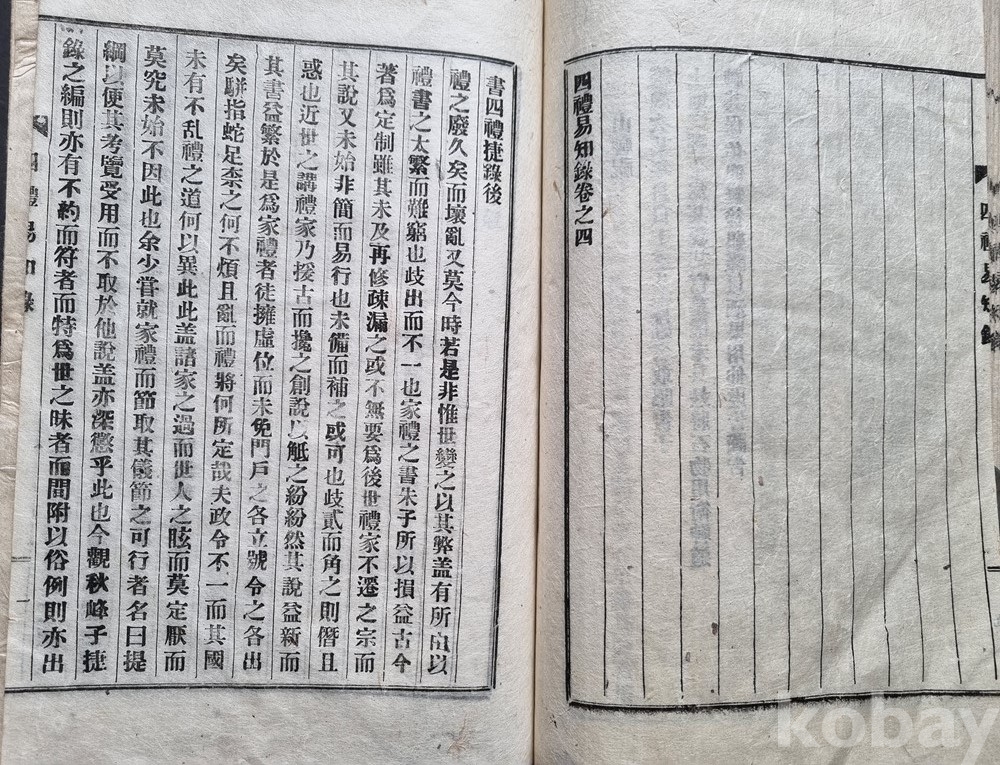 四禮易知錄卷之四
書四禮捷錄後
禮之廢久矣而壞亂又莫今時若是非惟世變之以其弊盖有所由以
禮書之太繁而難窮也歧出而不一也家禮之書朱子所以損益古今
著爲定制雖其未及再修疎漏之或不無要爲後世禮家不遷之宗而
其說又未始非簡而易行也未備而補之或可也歧貳而角之則僭且
惑也近世之講禮家乃援古而攙之創說以觝之紛紛然其說益新而
其書益繁於是爲家禮者徒擁虛位而未免門戶之各立號令之各出
矣騈指蛇足柰之何不煩且亂而禮將何所定哉夫政令不一而其國
未有不乱禮之道何以異此此盖諸家之過而世人之眩而莫定厭而
莫究未始不因此也余少甞就家禮而節取其儀節之可行者名曰提
綱以便其考覽受用而不取於他說盖亦深懲乎此也今觀秋峰子捷
錄之編則亦有不約而符者而特爲世之昧者而間附以俗例則亦出
四禮易知錄
kobay